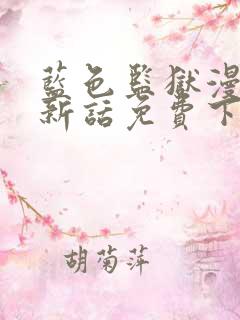 藍色監獄漫
新話免費下
胡菊萍